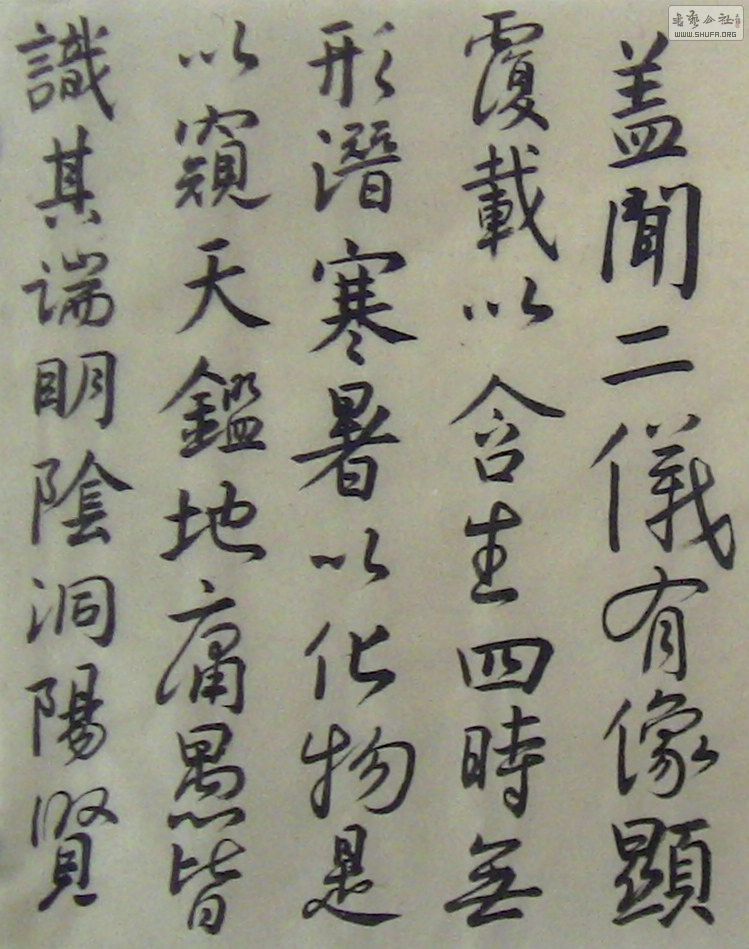 盖聞二儀有像顯
覆載以含生四時無
形潛寒暑以化物是
以窺天鑑地庸愚皆
識其端明陰洞陽賢
书艺公社
WWW.SHUFA.ORG